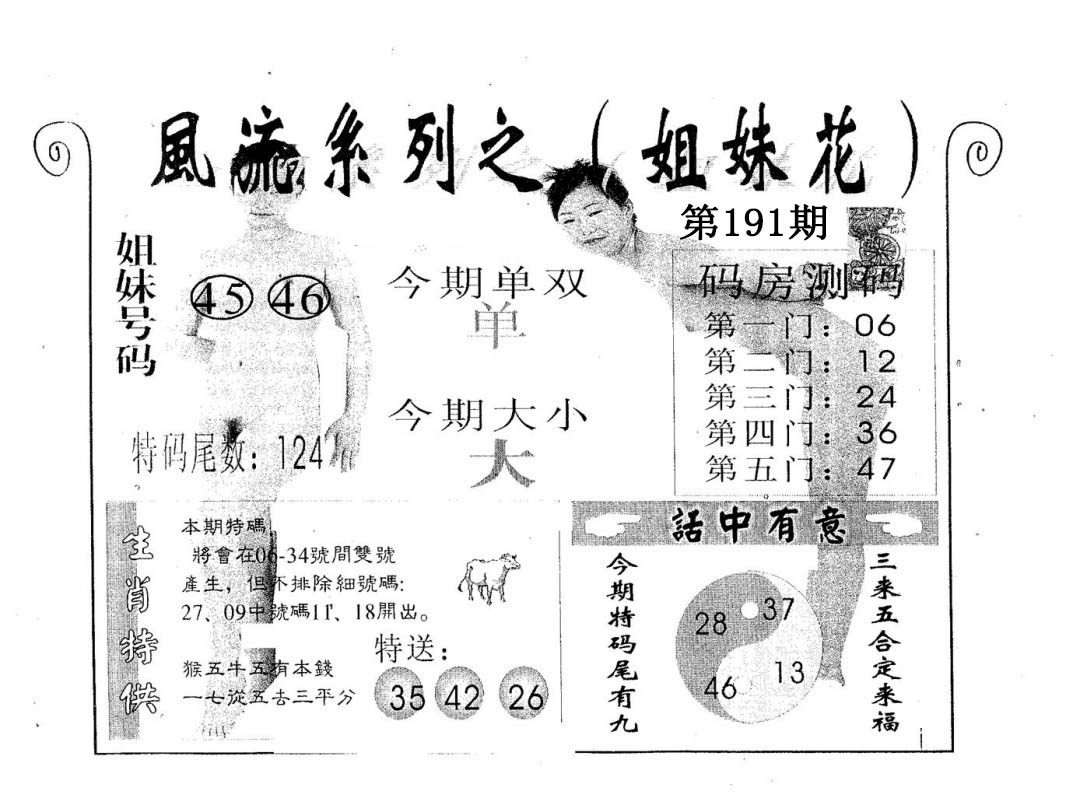 風流系列之（姐妹花）
第191期
姐妹号码
45 46
今期单双
单
今期大小
大
特码尾数：124
码房测码
第一门：06
第二门：12
第三门：24
第四门：36
第五门：47
生肖特供
本期特碼
將會在06-34號間雙號
產生，但不排除細號碼：
27、09中號碼11、18開出。
猴五牛五有本錢
一七從五去三平分
特送：
35 42 26
話中有意
今期特码尾有九
28 37
46 13
三来五合定来福